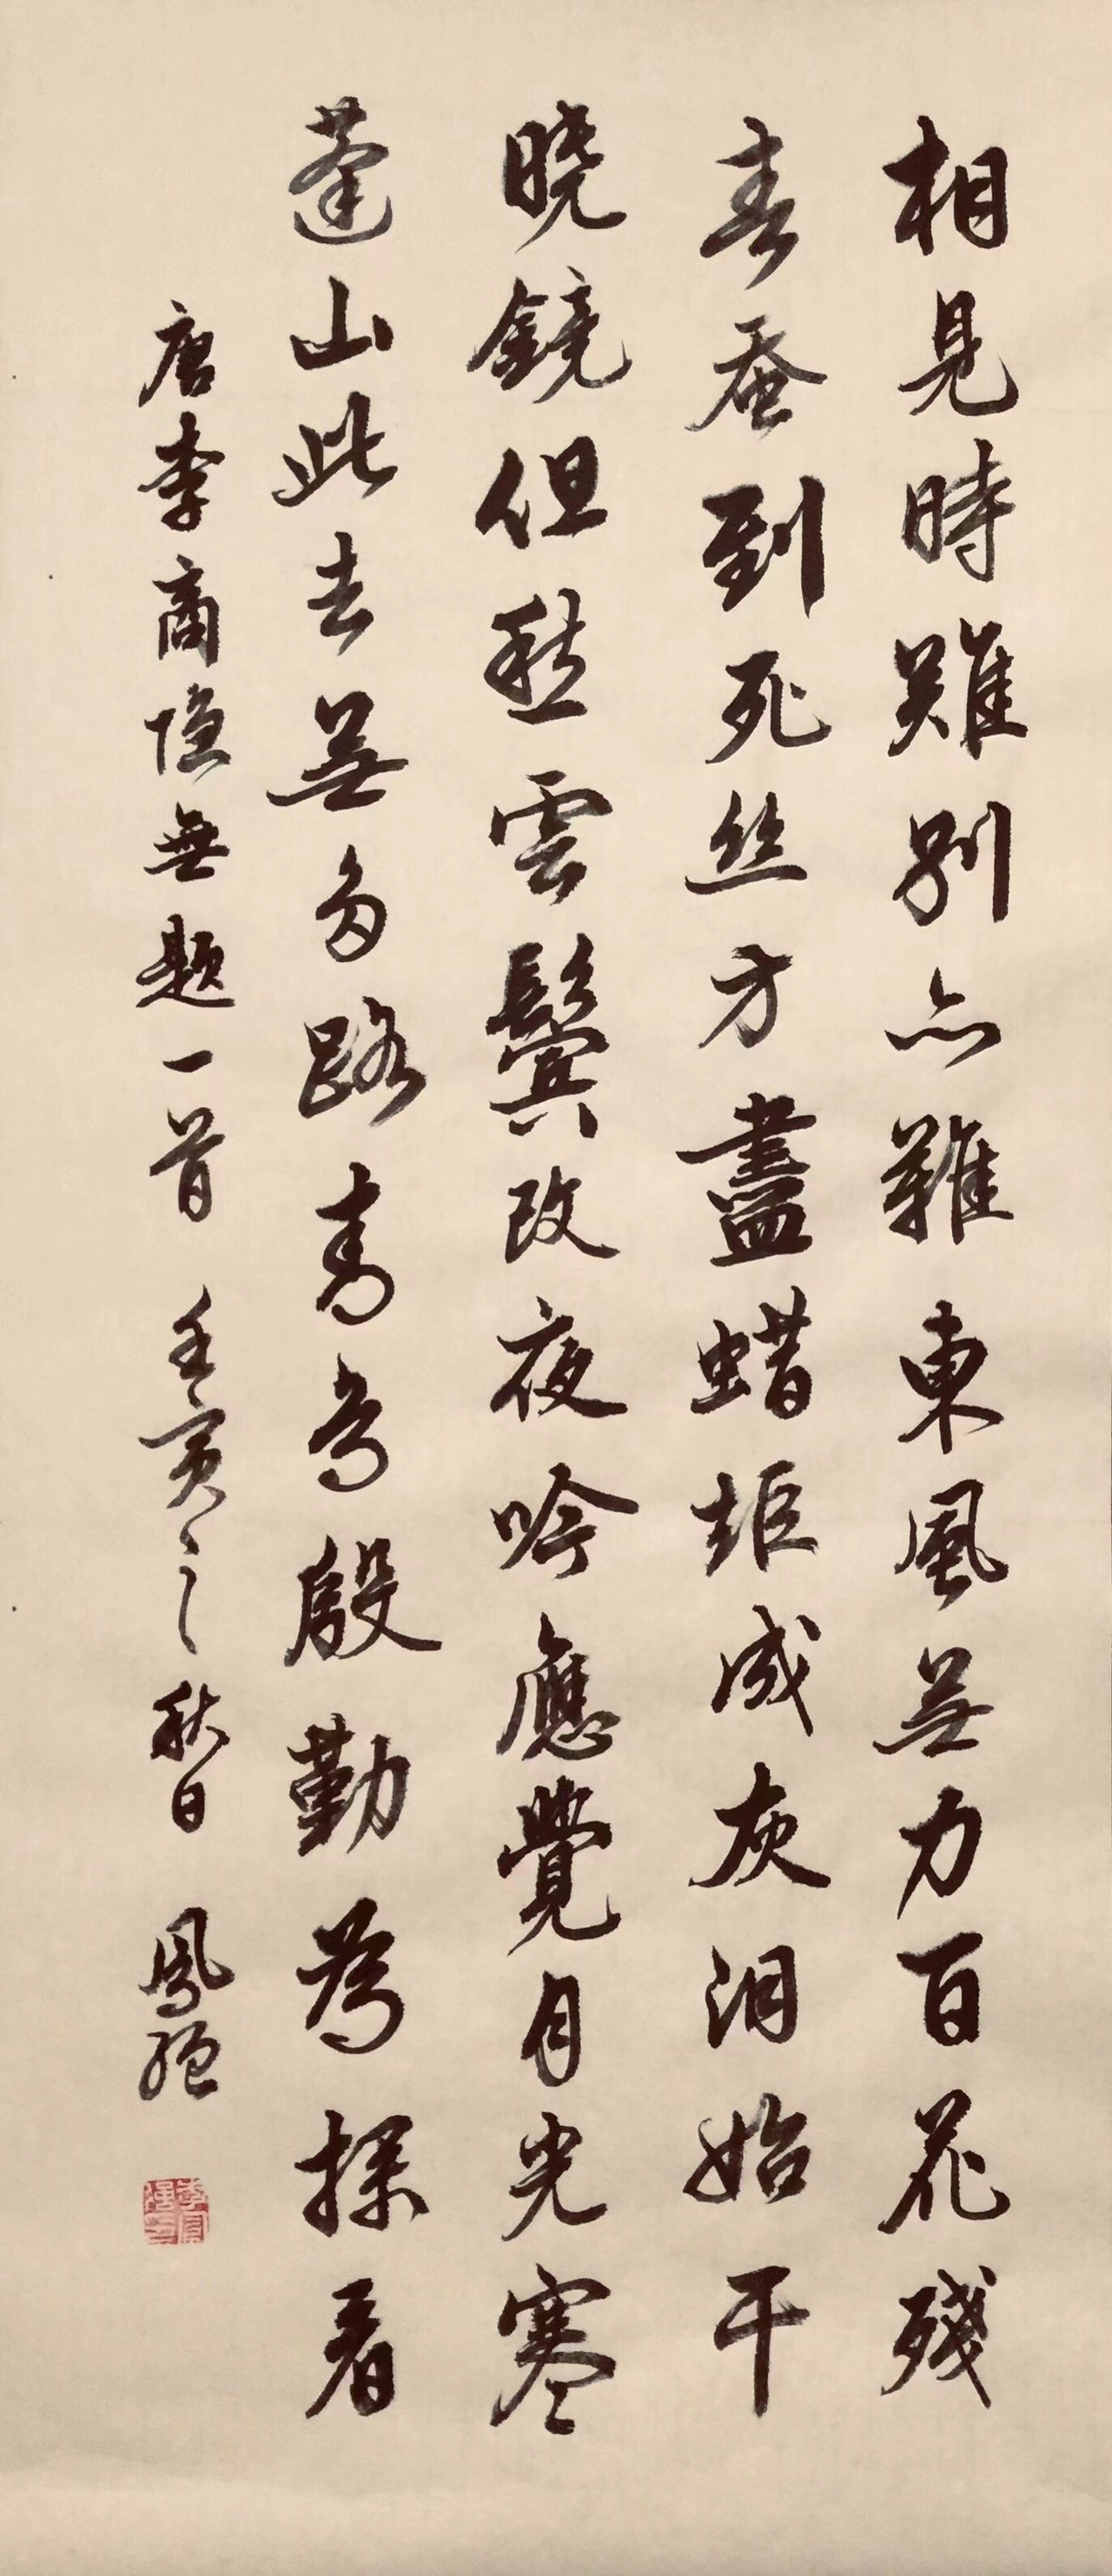 相見時難別亦難東風無力百花殘
春蚕到死丝方盡蜡炬成灰泪始干
晓鏡但愁雲鬢改夜吟應覺月光寒
蓬山此去無多路青鳥殷勤為探看
唐李商隐無題一首 壬寅之秋日 鳳